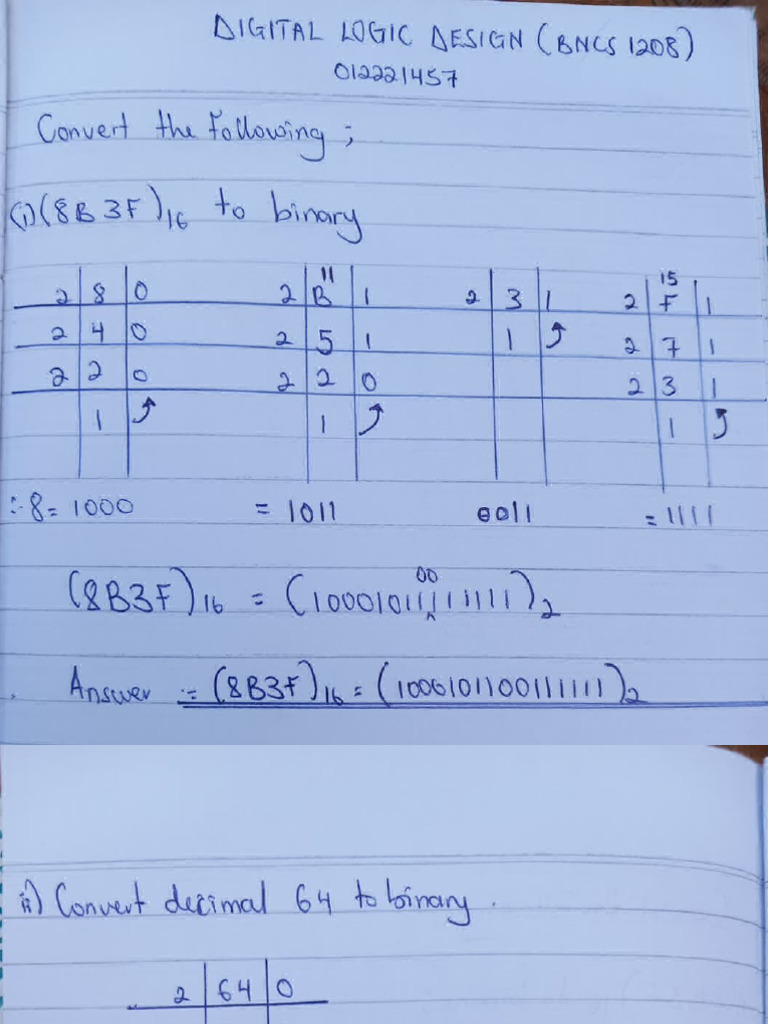 DIGITAL LOGIC DESIGN (BNCS 1208)
012221457
Convert the following;
(i) (8B3F)16 to binary
2 8 0    2 B 11 1    2 3 1    2 F 15 1
2 4 0    2 5 1    1    2 7 1
2 2 0    2 2 0    2 3 1
1    1    1
∴ 8 = 1000    = 1011    0011    = 1111
(8B3F)16 = (10001011001 11111)2
Answer :- (8B3F)16 = (1000101100111111)2
ii) Convert decimal 64 to binary.
2 64 0